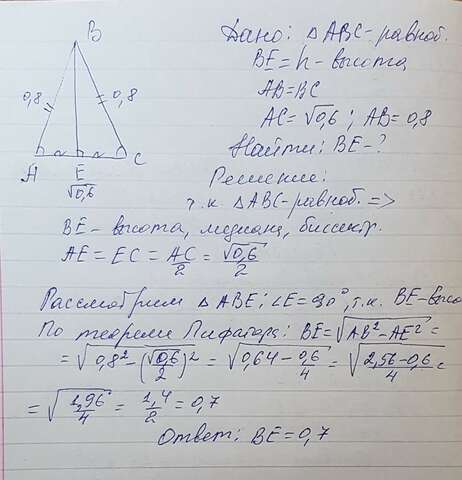 B
0,8 0,8
A E C
√0,6
Дано: △ABC-равноб.
BE=h-высота
AB=BC
AC=√0,6; AB=0,8
Найти: BE-?
Решение:
т.к △ABC-равноб. =>
BE-высота, медиана, биссектр.
AE=EC=AC/2=√0,6/2
Рассмотрим △ABE; ∠E=90°, т.к. BE-высо
По теореме Пифагора: BE=√AB²-AE²=
=√0,8²-(√0,6/2)²=√0,64-0,6/4=√2,56-0,6/4=
=√1,96/4=1,4/2=0,7
Ответ: BE=0,7